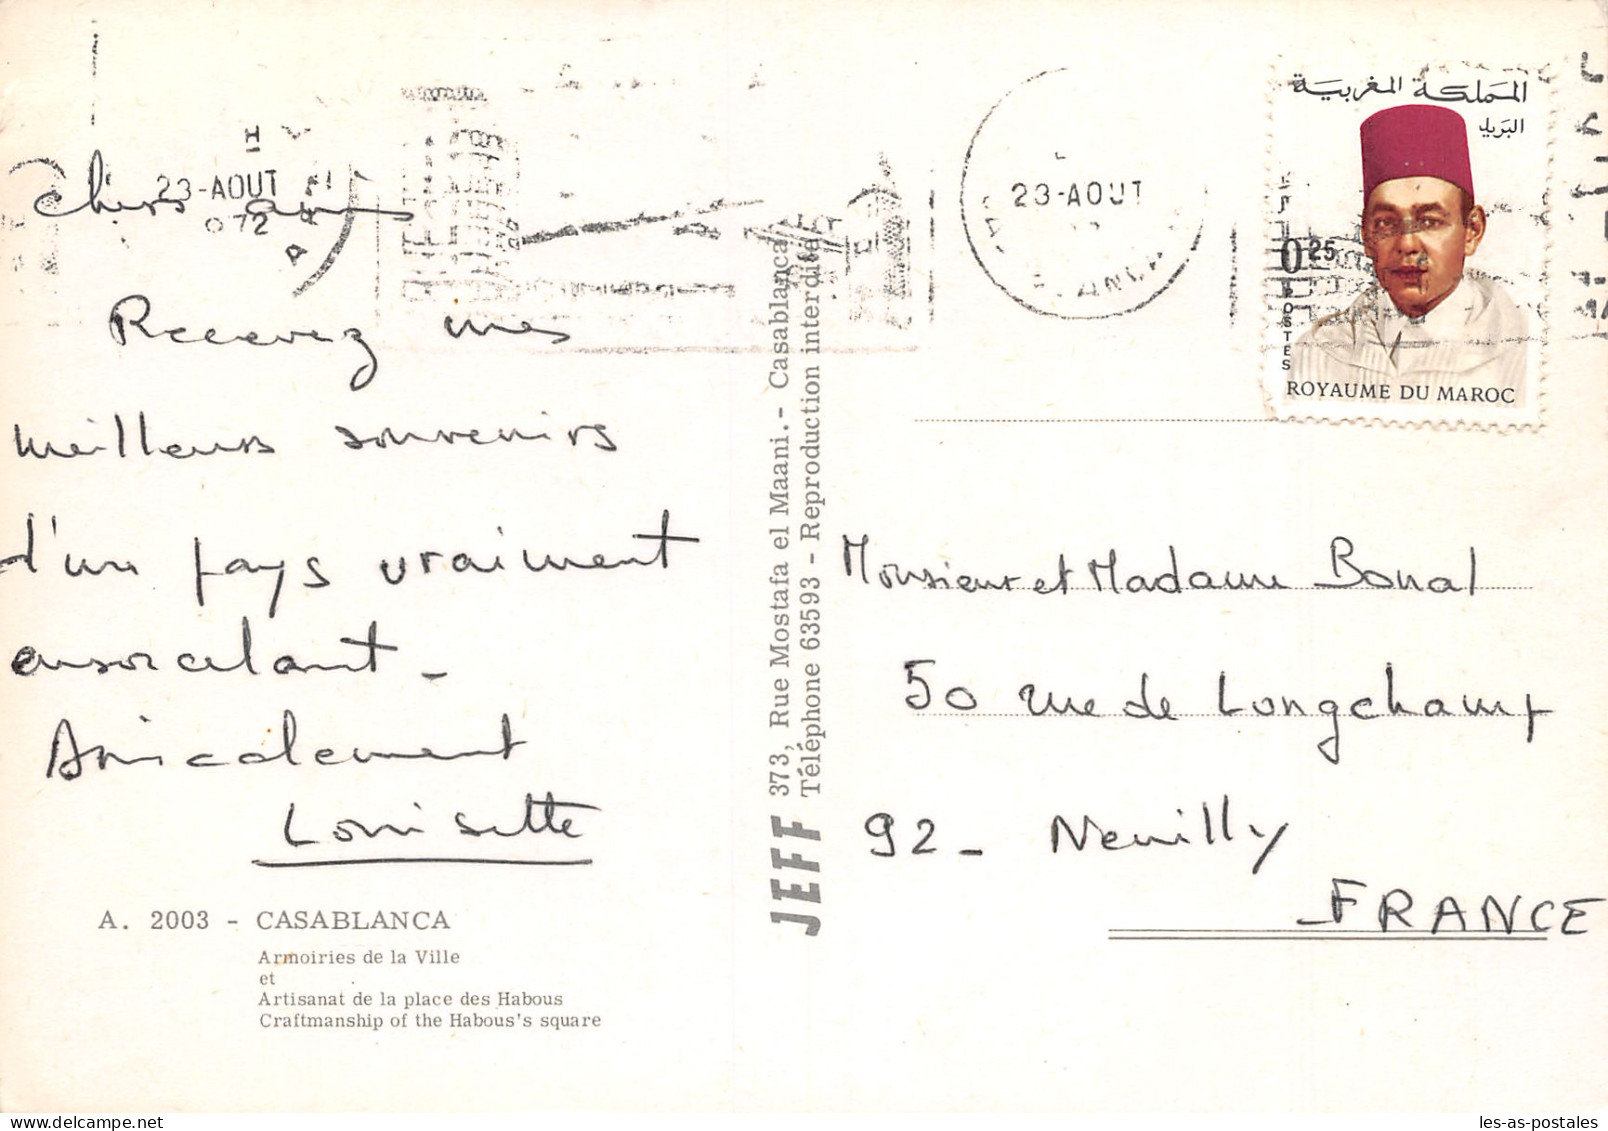 23-AOUT
972
Chers amis
Recevez mes
meilleurs souvenirs
d'un pays vraiment
ensorcelant -
Amicalement
Louisette
A. 2003 - CASABLANCA
Armoiries de la Ville
et
Artisanat de la place des Habous
Craftmanship of the Habous's square
JEFF 373, Rue Mostafa el Maani. - Casablanca
Téléphone 63593 - Reproduction interdite
23-AOUT
المملكة المغربية
البريد
0,25
POSTES
ROYAUME DU MAROC
Monsieur et Madame Bonal
50 rue de Longchamp
92 - Neuilly
FRANCE
les-as-postales